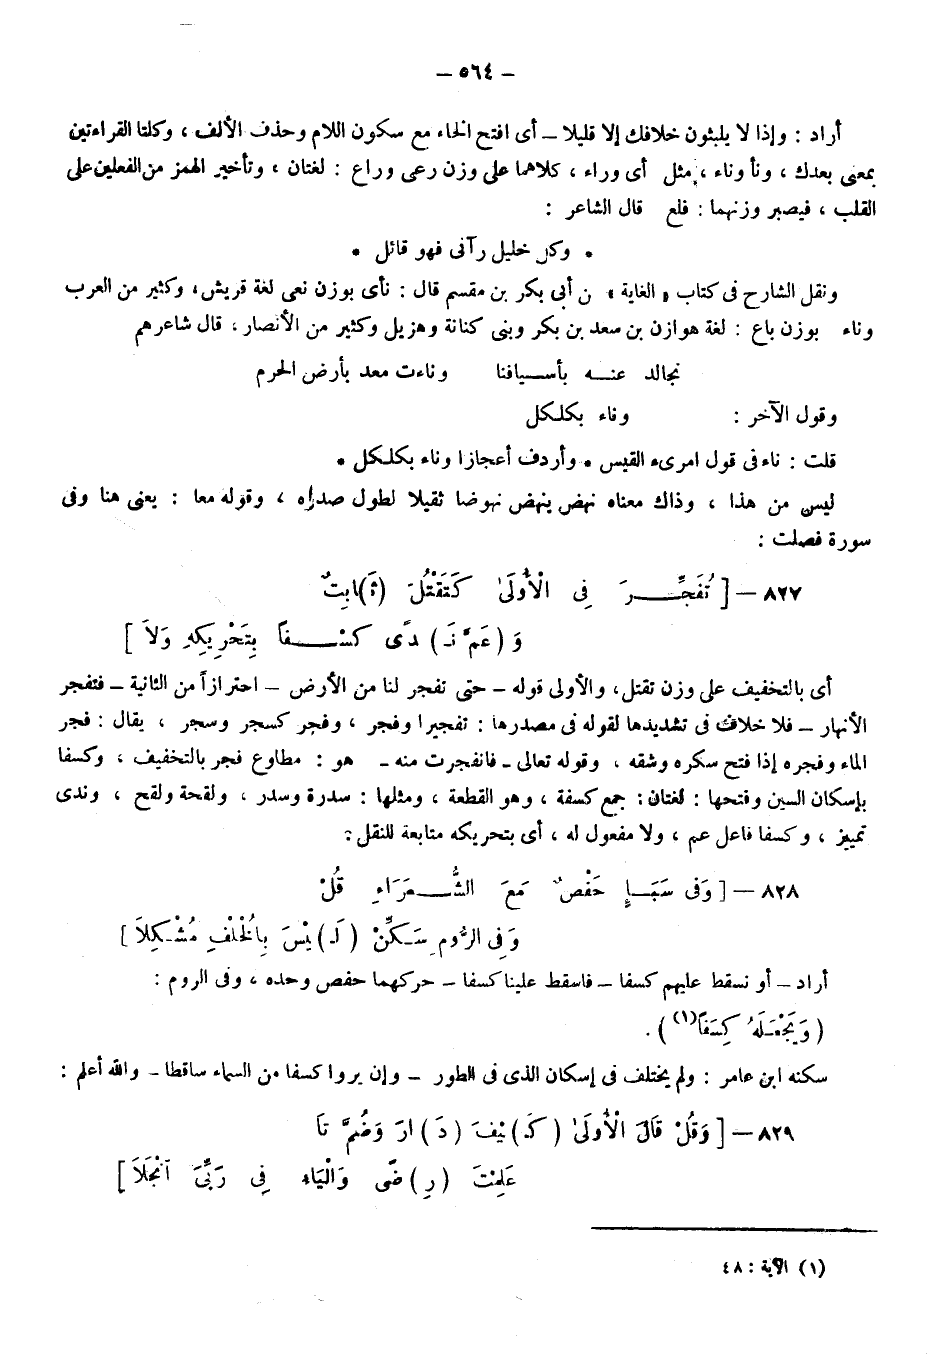 — ٥٦٤ —
أراد : وإذا لا يلبثون خلافك إلا قليلا — أى افتح الخاء مع سكون اللام وحذف الألف ، وكلتا القراءتين
بمعنى بعدك ، ونأ وناء ، مثل أى وراء ، كلاهما على وزن رعى وراع : لغتان ، وتأخير الهمز من الفعلين على
القلب ، فيصير وزنهما : فلع قال الشاعر :
• وكل خليل رآنى فهو قائل •
ونقل الشارح فى كتاب « الغاية » ن أبى بكر بن مقسم قال : نأى بوزن نعى لغة قريش ، وكثير من العرب
وناء بوزن باع : لغة هوازن بن سعد بن بكر وبنى كنانة وهزيل وكثير من الأنصار ، قال شاعرهم
نجالد عنه بأسيافنا وناءت معد بأرض الحرم
وقول الآخر : وناء بكلكل
قلت : ناء فى قول امرىء القيس • وأردف أعجازا وناء بكلكل •
ليس من هذا ، وذاك معناه نهض ينهض نهوضا ثقيلا لطول صدراه ، وقوله معا : يعنى هنا وفى
سورة فصلت :
٨٢٧ — [ تُفَجِّرَ فِى الْأُولَى كَتَقْتُلَ (ثَـ)ابِتٌ
وَ (عَمَّ نَـ) دًى كِسْفًا بِتَحْرِيكِهِ وَلَا ]
أى بالتخفيف على وزن تقتل ، والأولى قوله — حتى تفجر لنا من الأرض — احترازاً من الثانية — فتفجر
الأنهار — فلا خلاف فى تشديدها لقوله فى مصدرها : تفجيرا وفجر ، وفجر كسجر وسجر ، يقال : فجر
الماء وفجره إذا فتح سكره وشقه ، وقوله تعالى — فانفجرت منه — هو : مطاوع فجر بالتخفيف ، وكسفا
بإسكان السين وفتحها : لغتان : جمع كسفة ، وهو القطعة ، ومثلها : سدرة وسدر ، ولقحة ولقح ، وندى
تمييز ، وكسفا فاعل عم ، ولا مفعول له ، أى بتحريكه متابعة للنقل :
٨٢٨ — [ وَفِى سَبَإٍ حَفْصٌ مَعَ الشُّعَرَاءِ قُلْ
وَفِى الرُّومِ سَكِّنْ (لَـ)يْسَ بِالْخُلْفِ مُشْكِلَا ]
أراد — أو نسقط عليهم كسفا — فاسقط علينا كسفا — حركهما حفص وحده ، وفى الروم :
( وَيَجْعَلُهُ كِسَفًا(١) ) .
سكنه ابن عامر : ولم يختلف فى إسكان الذى فى الطور — وإن يروا كسفا من السماء ساقطا — والله أعلم :
٨٢٩ — [ وَقُلْ قَالَ الْأُولَى (كَـ)يْفَ (دَ)ارَ وَضُمَّ تَا
عَلِمْتَ (رِ)ضًى وَالْيَاءُ فِى رَبِّىَ انْجَلَا ]
(١) الآية : ٤٨